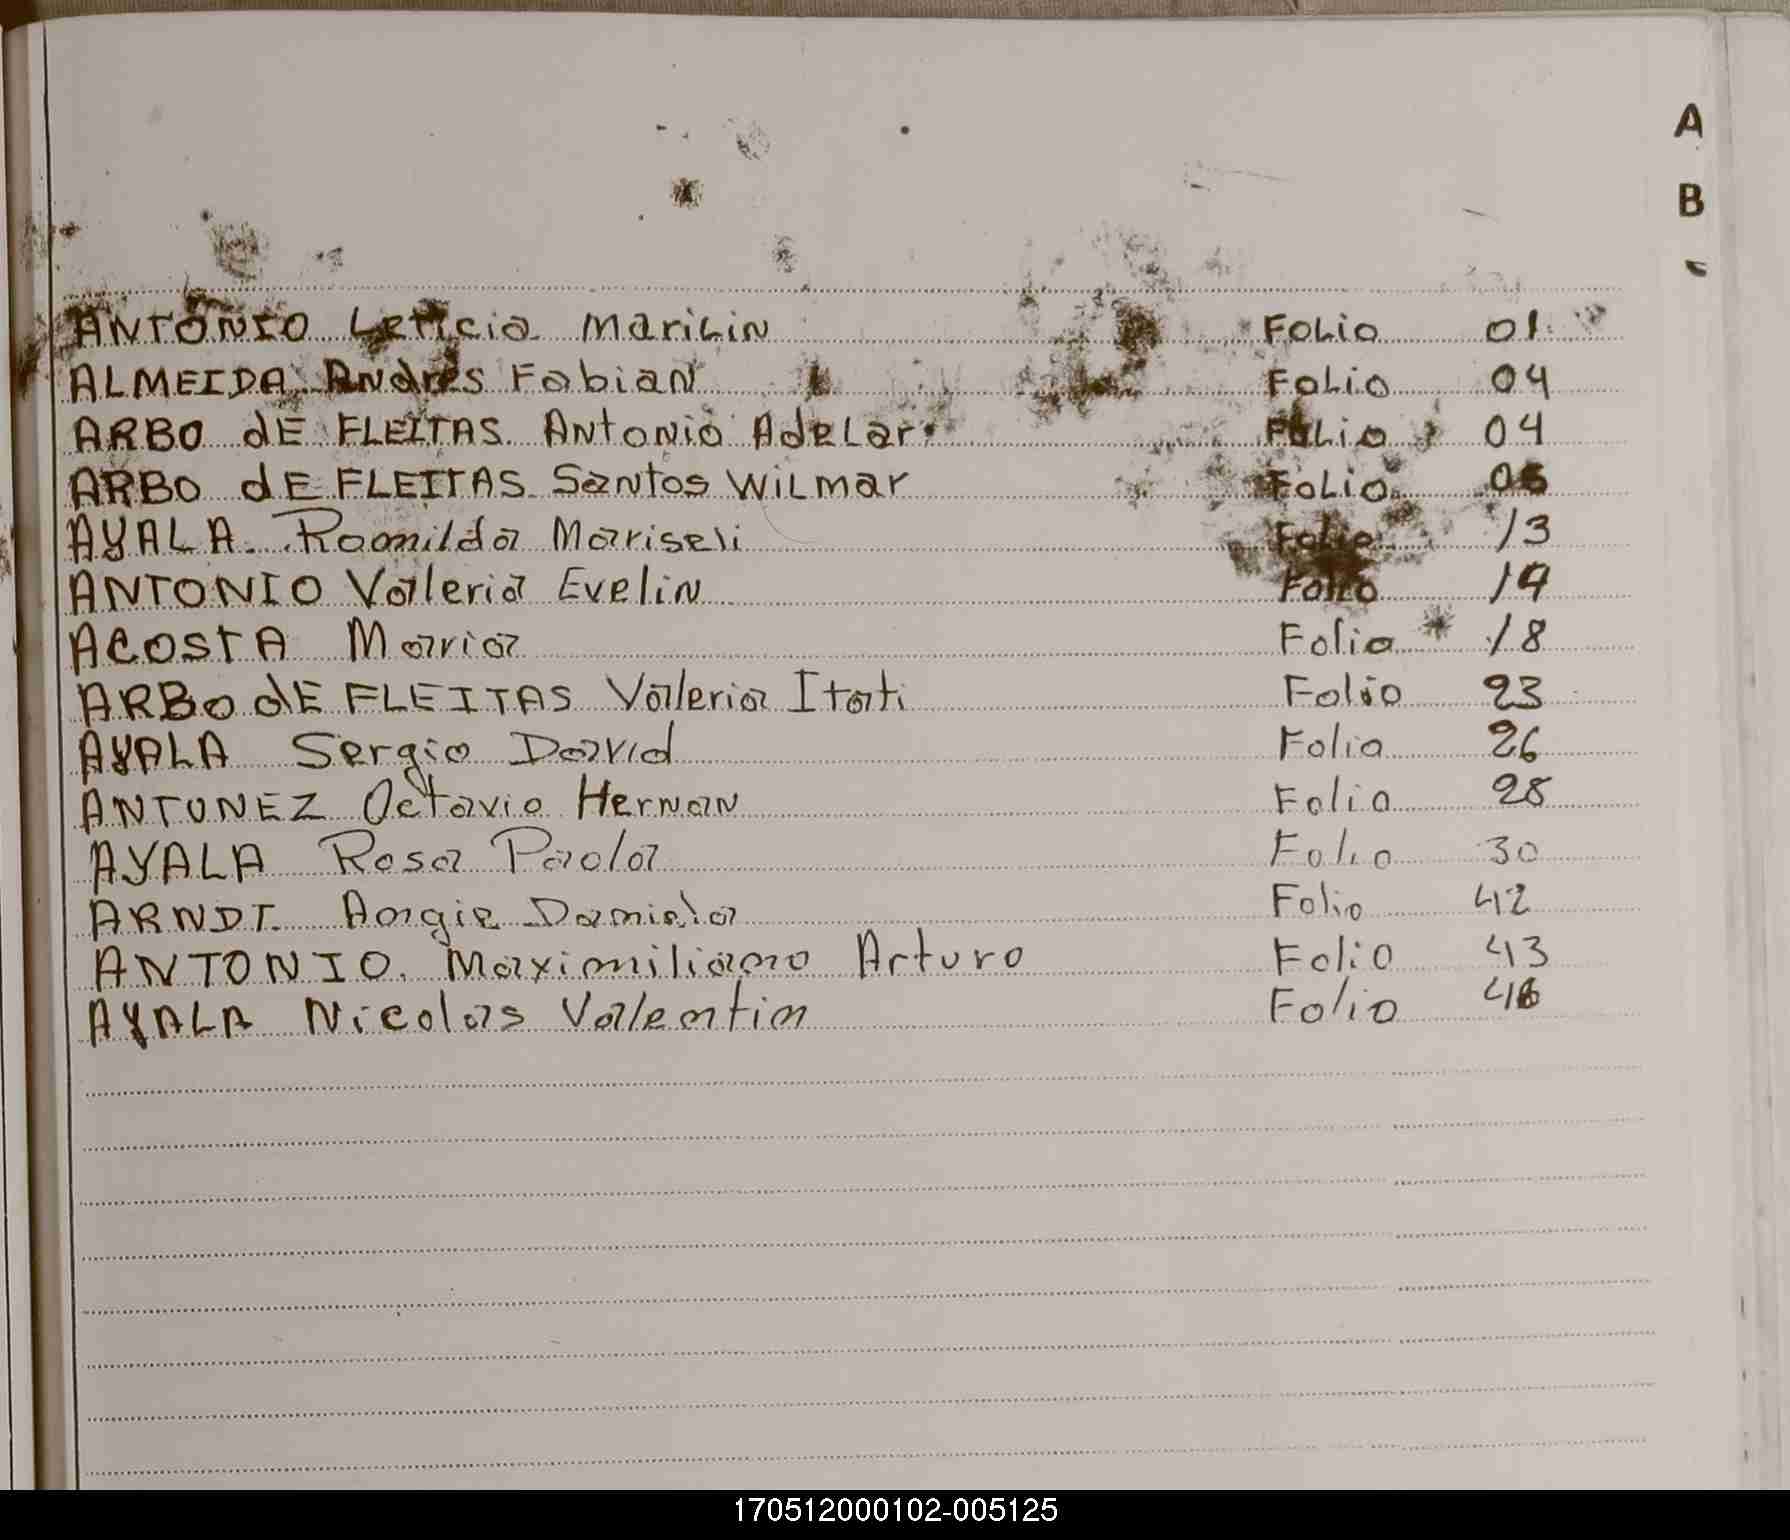 A
B
ANTONIO Leticia Marilin Folio 01
ALMEIDA Andres Fabian Folio 04
ARBO dE FLEITAS Antonio Adelar Folio 04
ARBO dE FLEITAS Santos Wilmar Folio 05
AYALA. Romilda Mariseli Folio 13
ANTONIO Valeria Evelin Folio 14
ACOSTA Maria Folio 18
ARBO dE FLEITAS Valeria Itati Folio 23
AYALA Sergio David Folio 26
ANTUNEZ Octavio Hernan Folio 28
AYALA Rosa Paola Folio 30
ARNDT. Angie Daniela Folio 42
ANTONIO. Maximiliano Arturo Folio 43
AYALA Nicolas Valentin Folio 46
170512000102-005125